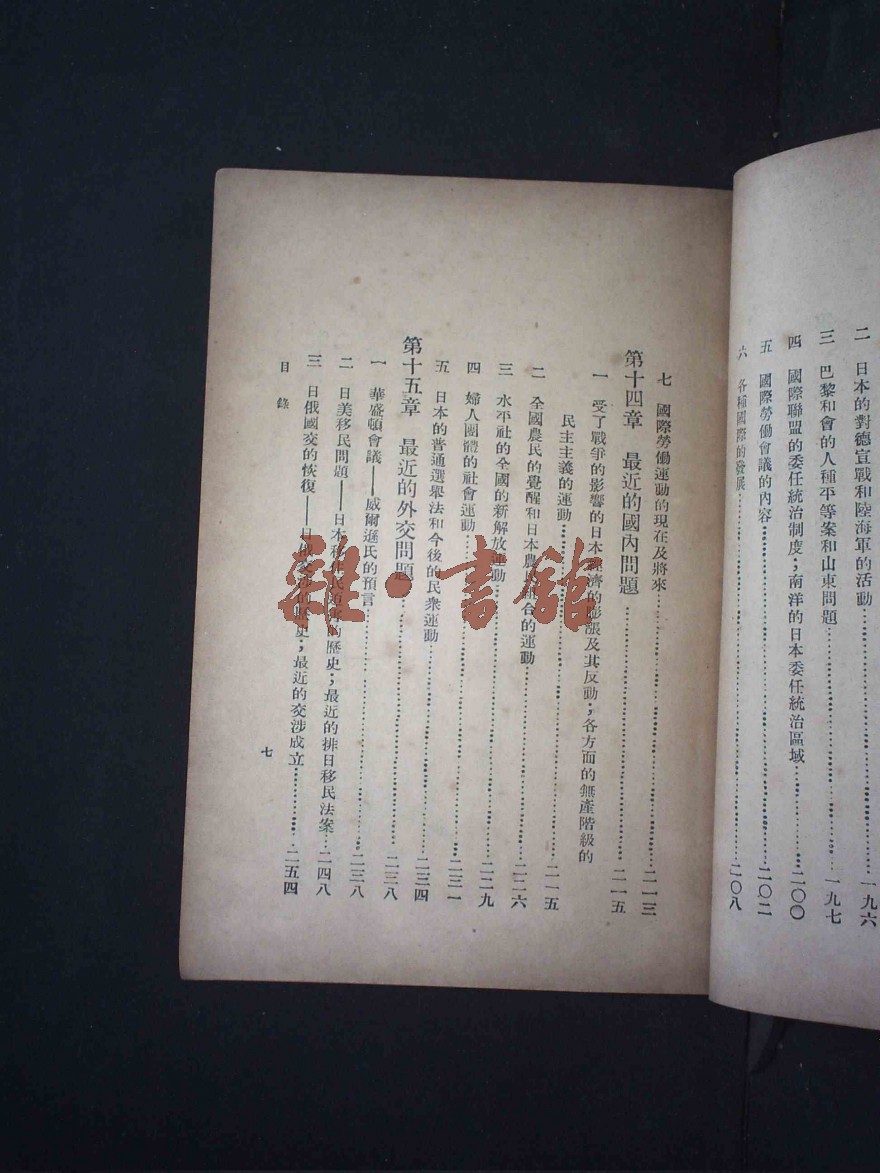 二 日本的對德宣戰和陸海軍的活動……一九六
三 巴黎和會的人種平等案和山東問題……一九七
四 國際聯盟的委任統治制度；南洋的日本委任統治區域……二〇〇
五 國際勞働會議的內容……二〇二
六 各種國際的發展……二〇八
七 國際勞働運動的現在及將來……二一三
第十四章 最近的國內問題……二一五
一 受了戰爭的影響的日本經濟的膨漲及其反動；各方面的無產階級的
民主主義的運動……二一五
二 全國農民的覺醒和日本農民組合的運動……二二六
三 水平社的全國的新解放運動……二二九
四 婦人團體的社會運動……二三一
五 日本的普通選舉法和今後的民衆運動……二三四
第十五章 最近的外交問題……二三八
一 華盛頓會議——威爾遜氏的預言……二三八
二 日美移民問題——日本移住民的歷史；最近的排日移民法案……二四八
三 日俄國交的恢復——日俄交涉的歷史；最近的交涉成立……二五四
目錄
七
雜·書館